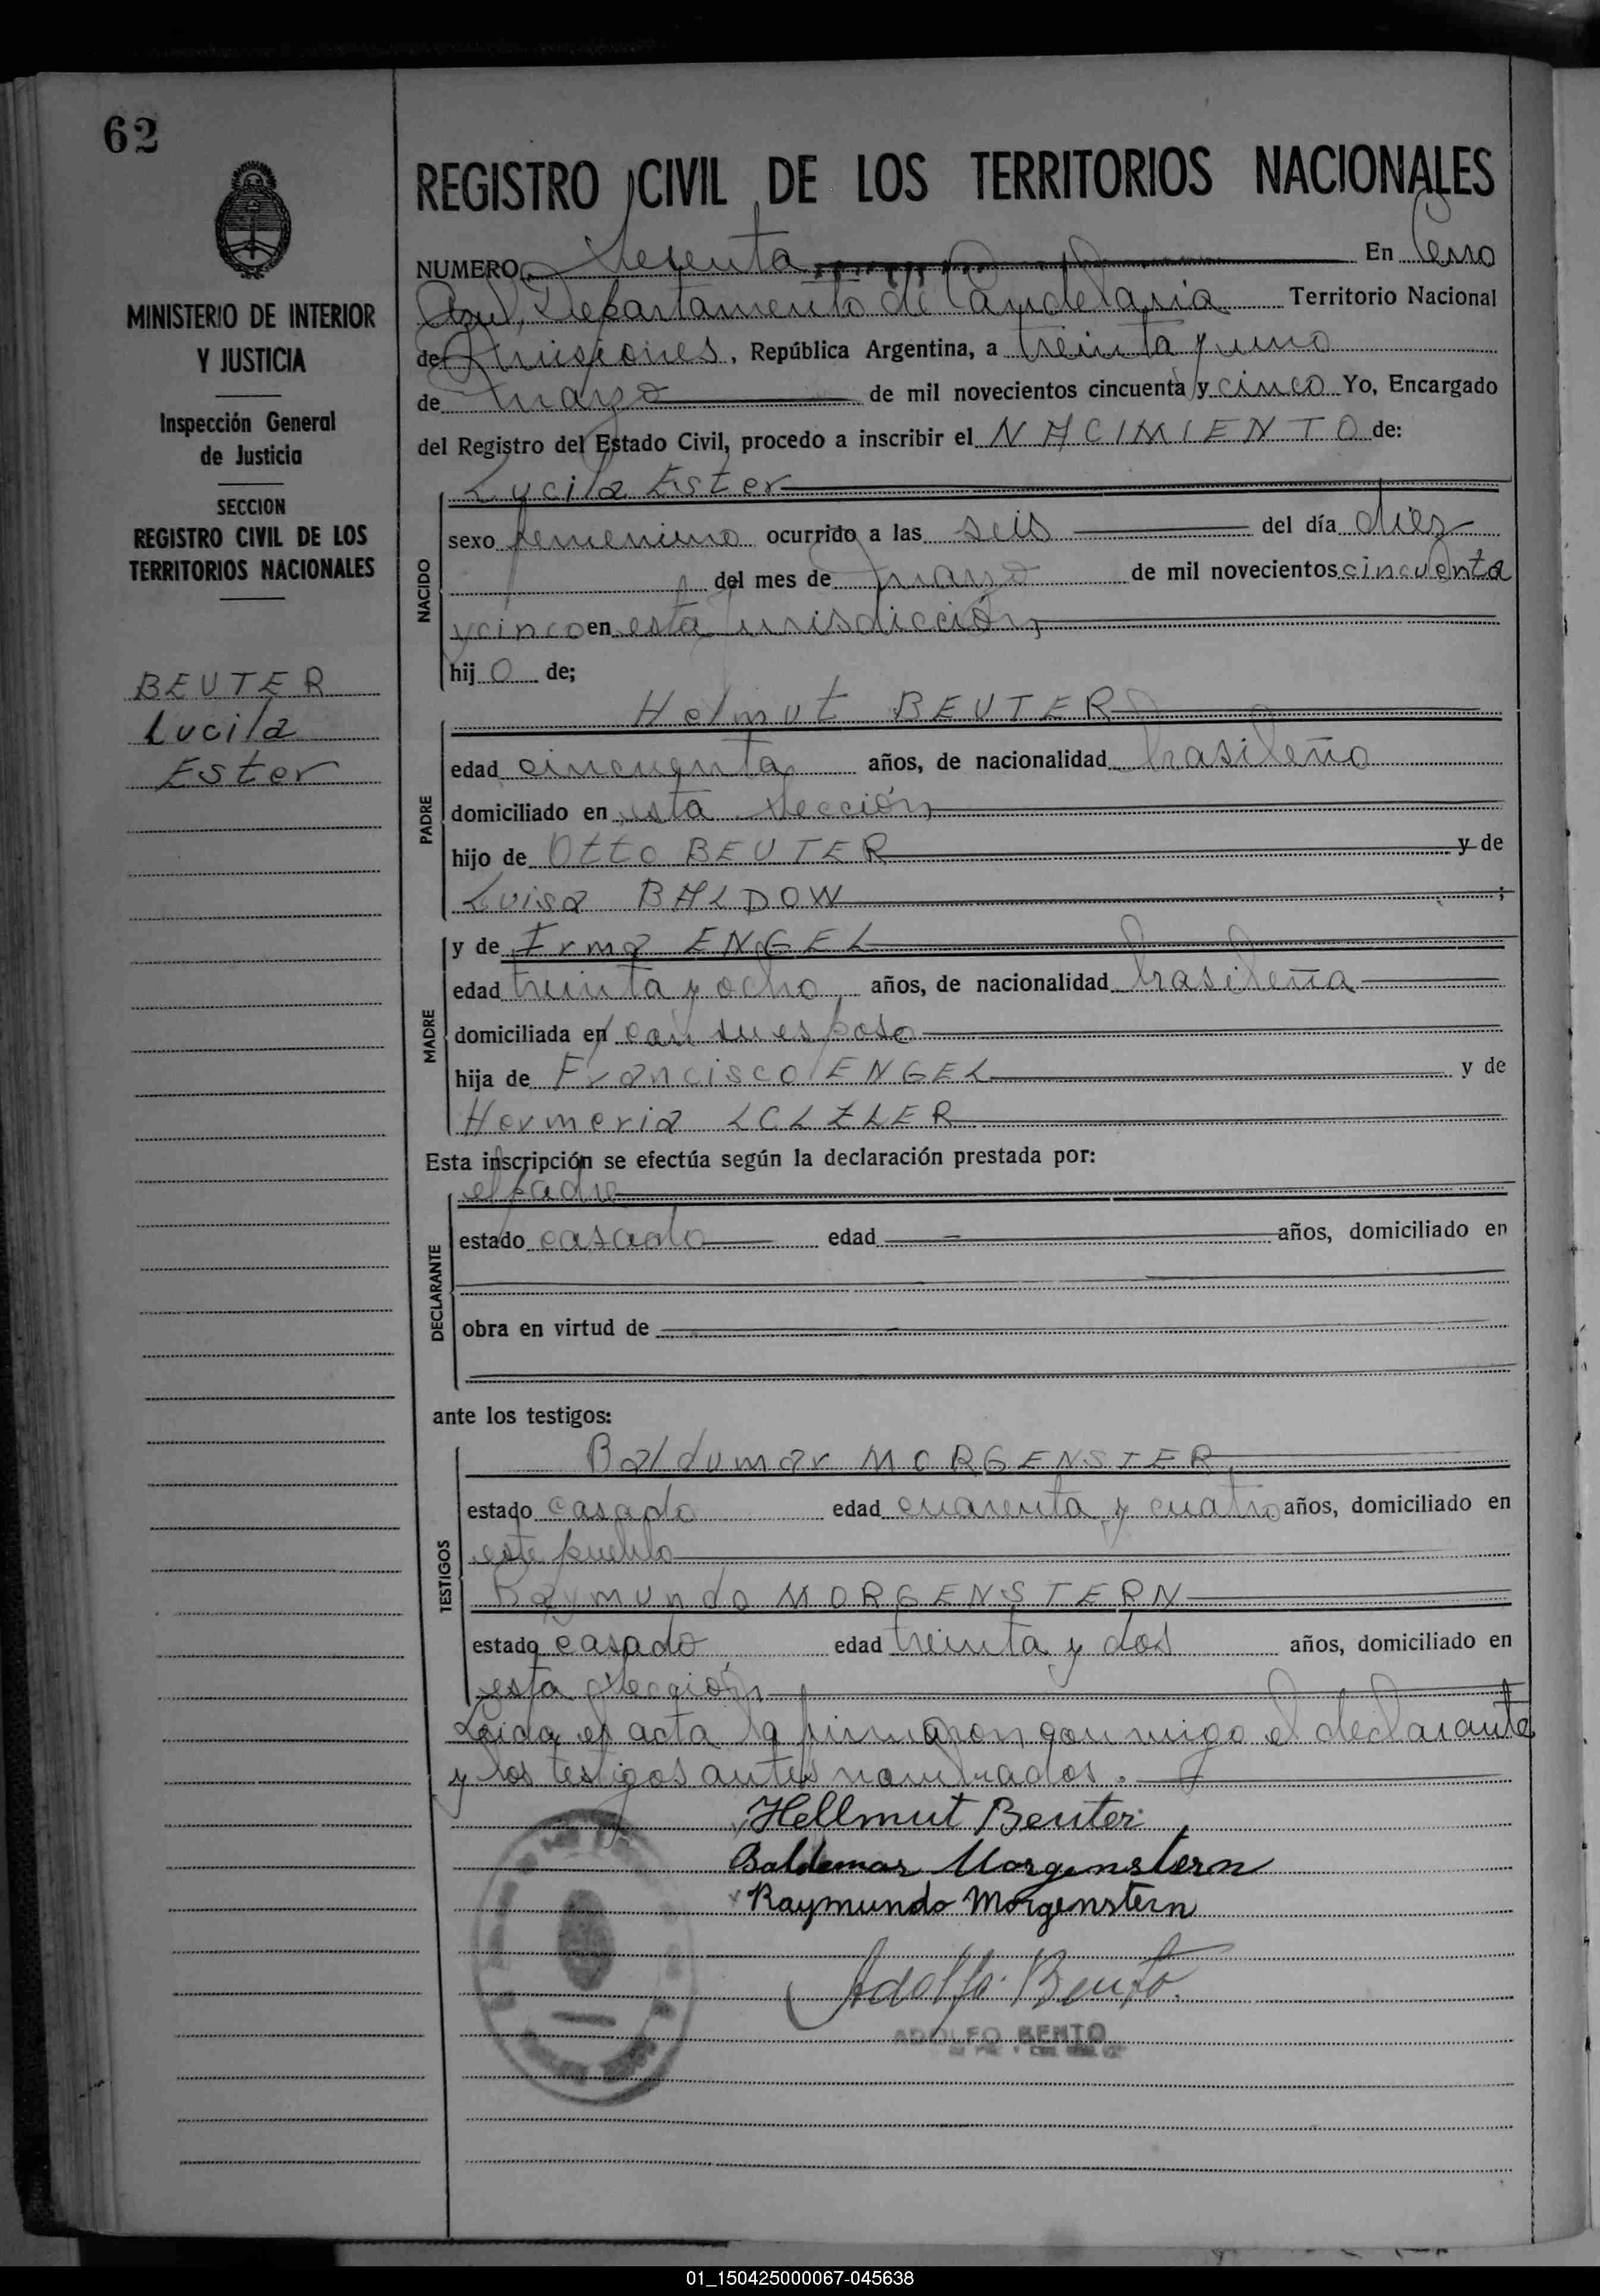 62
REGISTRO CIVIL DE LOS TERRITORIOS NACIONALES
MINISTERIO DE INTERIOR
Y JUSTICIA
Inspección General
de Justicia
SECCION
REGISTRO CIVIL DE LOS
TERRITORIOS NACIONALES
BEUTER
Lucila
Ester
NUMERO Sesenta En Cerro
Azul, Departamento de Candelaria Territorio Nacional
de Misiones, República Argentina, a treinta y uno
de marzo de mil novecientos cincuenta y cinco Yo, Encargado
del Registro del Estado Civil, procedo a inscribir el NACIMIENTO de:
Lucila Ester
NACIDO
sexo femenino ocurrido a las seis del día diez
del mes de marzo de mil novecientos cincuenta
y cinco en esta jurisdicción,
hij o de;
Helmut BEUTER
PADRE
edad cincuenta años, de nacionalidad brasileño
domiciliado en esta Sección,
hijo de Otto BEUTER y de
Luisa BALDOW ;
MADRE
y de Irma ENGEL
edad treinta y ocho años, de nacionalidad brasileña
domiciliada en con su esposo
hija de Francisco ENGEL y de
Hermeria
Esta inscripción se efectúa según la declaración prestada por:
DECLARANTE
el padre
estado casado edad — años, domiciliado en
obra en virtud de
ante los testigos:
TESTIGOS
Baldumar MORGENSTER,
estado casado edad cuarenta y cuatro años, domiciliado en
este pueblo
Raymundo MORGENSTERN
estado casado edad treinta y dos años, domiciliado en
esta Sección,
Leida el acta la firmaron conmigo el declarante
y los testigos antes nombrados.
Hellmut Beuter
Baldemar Morgenstern
Raymundo Morgenstern
Adolfo Bento
ADOLFO BENTO
01_150425000067-045638